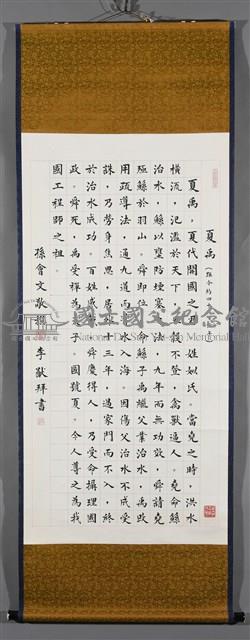 夏禹（距今約四
夏禹，夏代開國之
姓姒氏。當堯之時，洪水
橫流，氾濫於天下，
穀不登，禽獸逼人。堯命鯀
治水，鯀以壅防堙塞
法，九年而無功效，舜請堯
殛鯀於羽山。舜即位，
命鯀子禹繼父業治水，禹改
用疏導法，通九道而
水入海。因傷父治水不成受
誅，乃勞身焦思，居
十三年，過家門而不入，終
於治水成功。百姓感
舜慶得人，乃受命攝理國
政。舜死，禹受禪為
子。國號夏。今人尊之為我
國工程師之祖。
孫會文敬撰
李猷拜書
國立國父紀念館